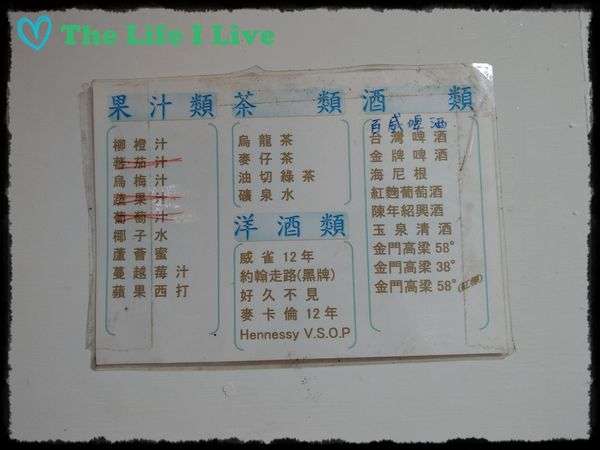 The Life I Live
果汁類
柳橙汁
蕃茄汁
烏梅汁
蔬果汁
葡萄汁
椰子水
蘆薈蜜
蔓越莓汁
蘋果西打
茶類
烏龍茶
麥仔茶
油切綠茶
礦泉水
洋酒類
威雀12年
約翰走路(黑牌)
好久不見
麥卡倫12年
Hennessy V.S.O.P
酒類
百威啤酒
台灣啤酒
金牌啤酒
海尼根
紅麴葡萄酒
陳年紹興酒
玉泉清酒
金門高梁58°
金門高梁38°
金門高梁58°